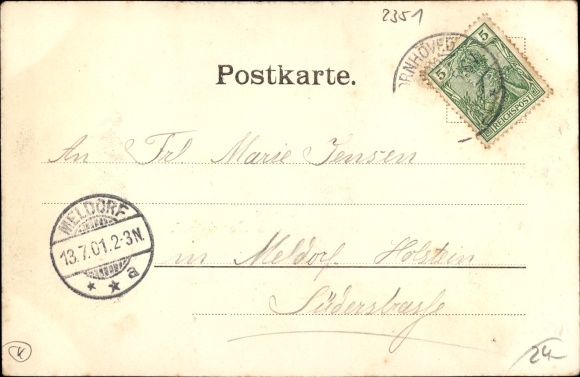 2351
ORNHÖVED
5 5
REICHSPOST
Postkarte.
An Frl. Marie Jensen
MELDORF
13.7.01.2-3N.
* * a
in Meldorf Holstein
Süderstrasse
K
24-